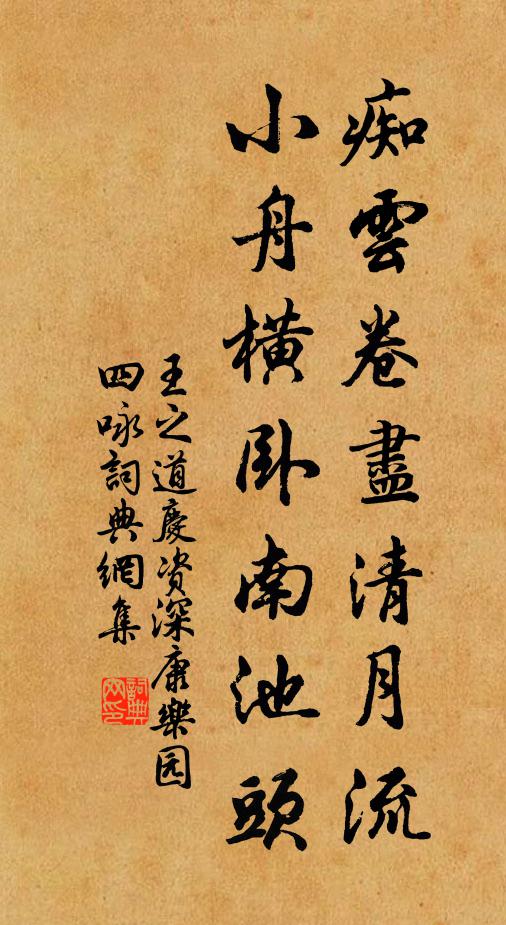 痴雲卷盡清月流
小舟橫卧南池頭
王之道慶资深康樂园
四咏詞典網集
詞典
网印